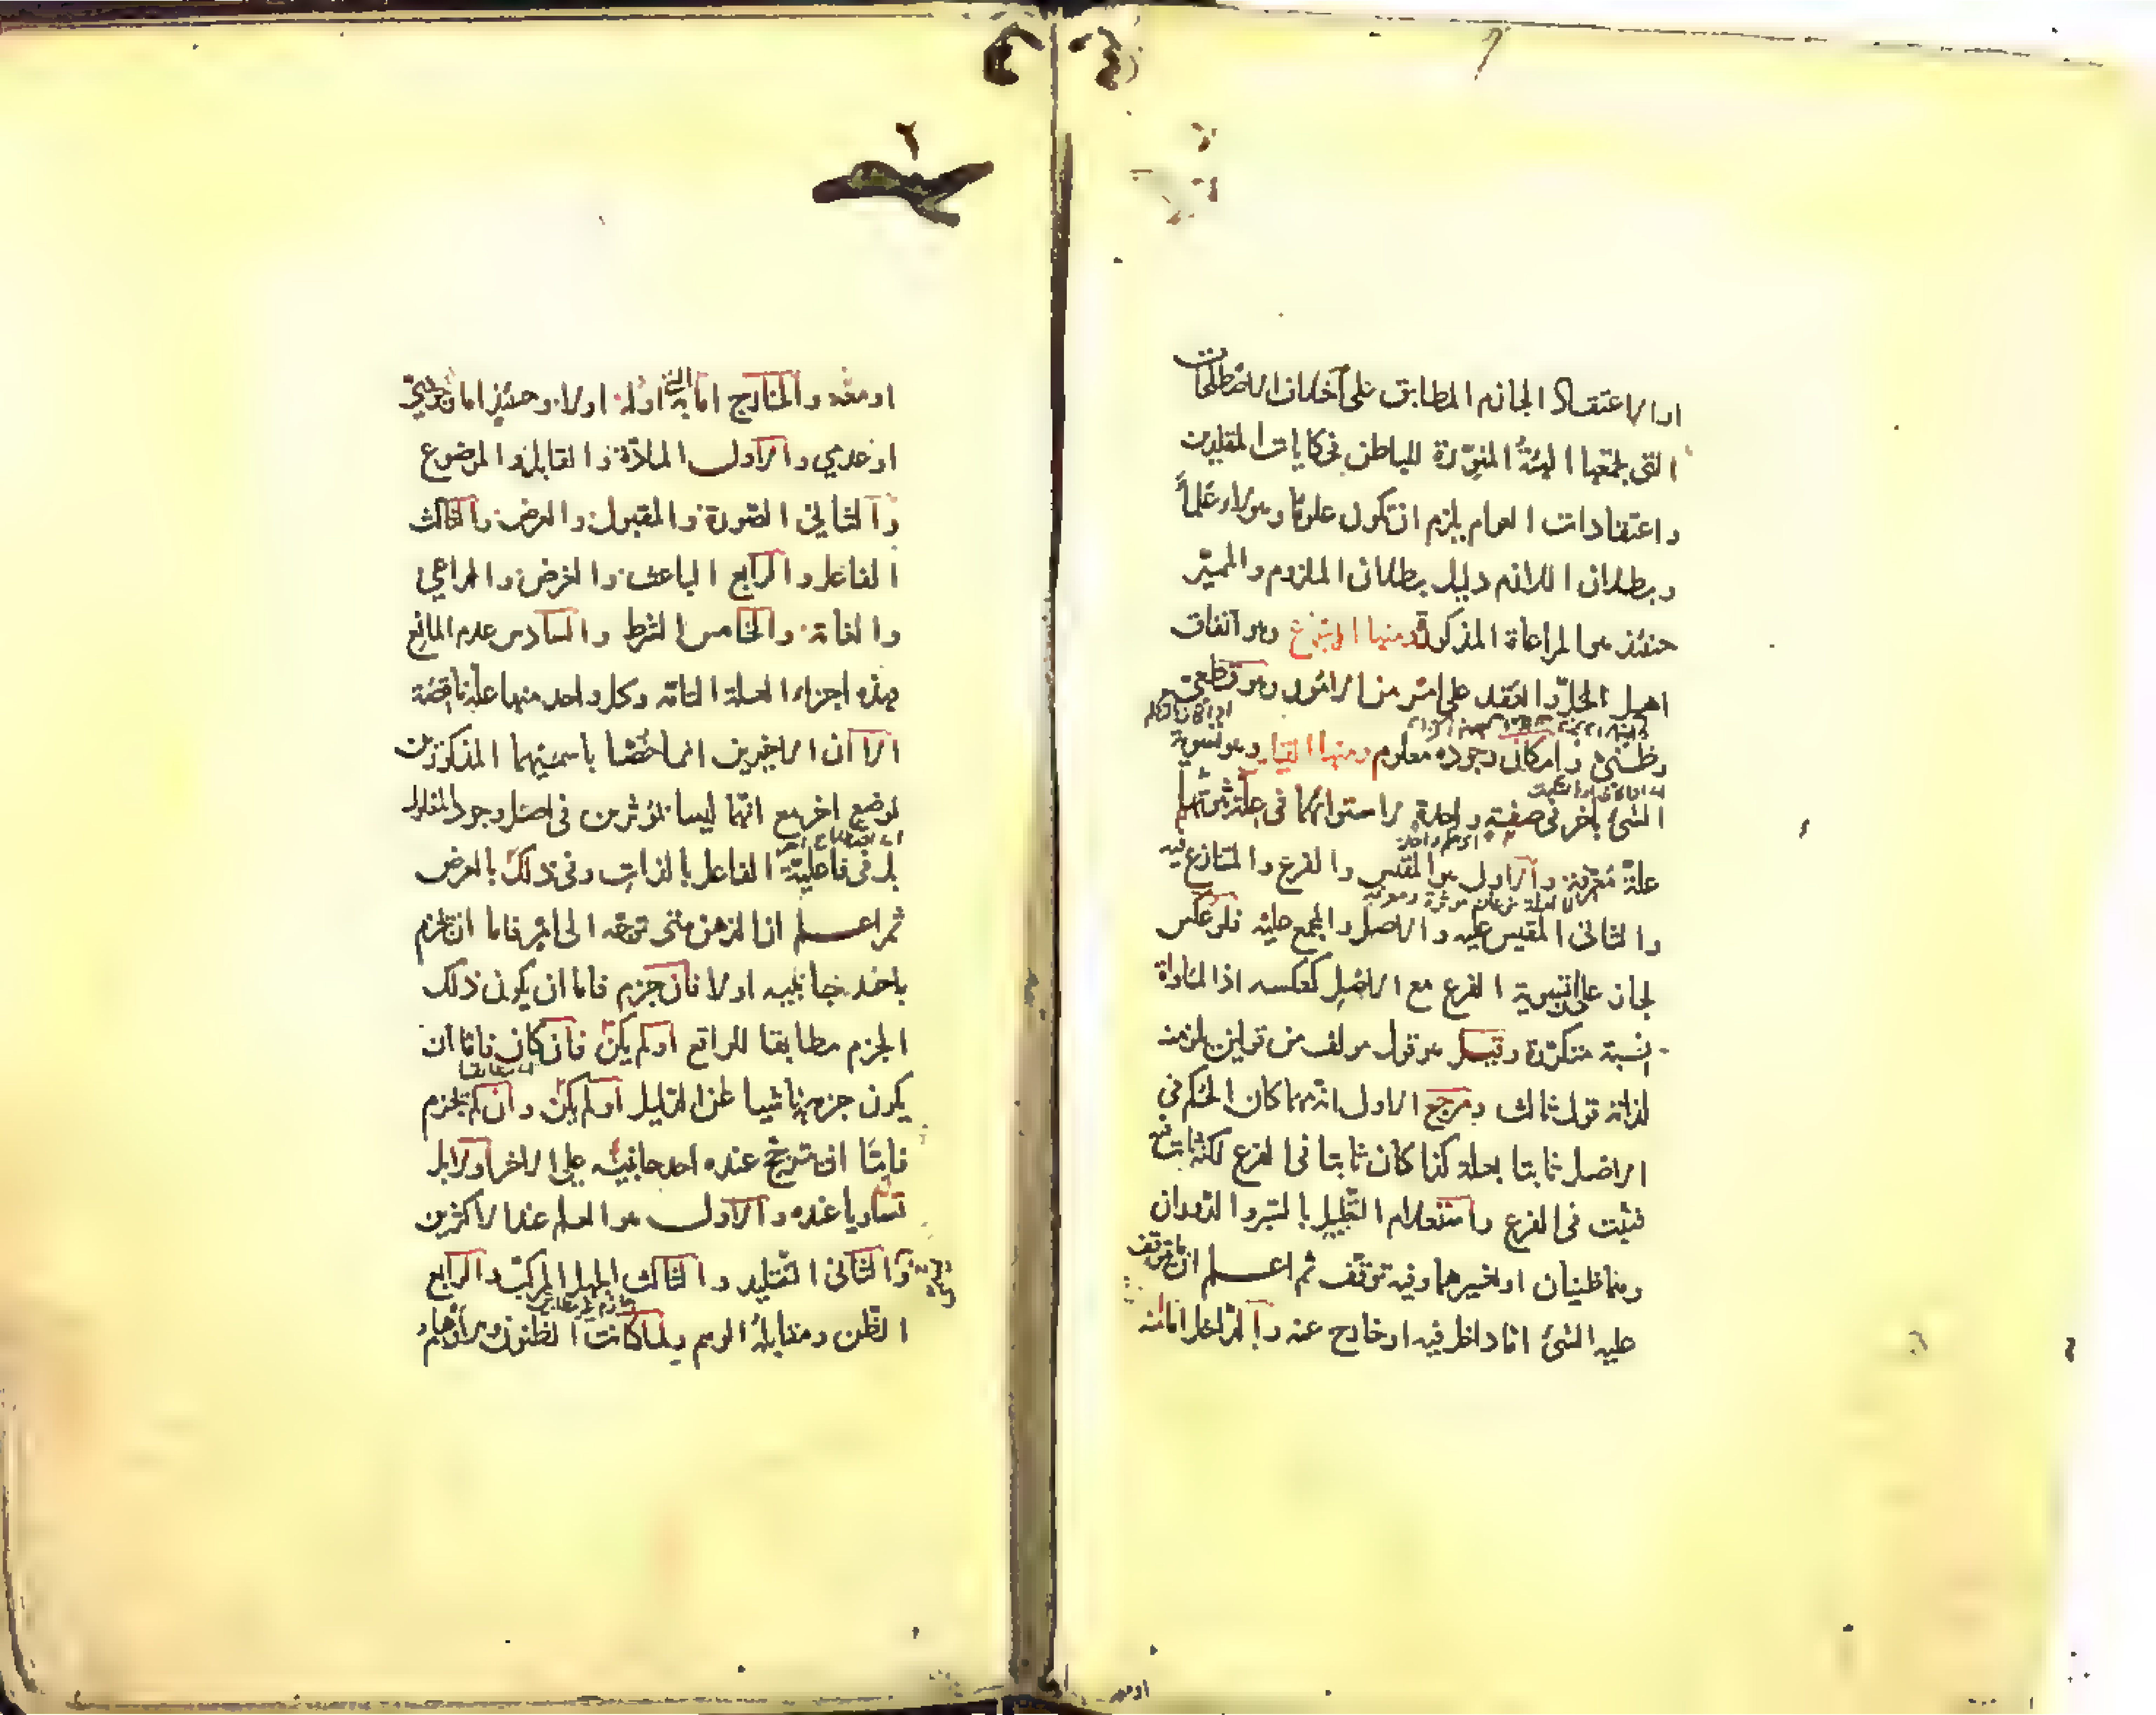 او الاعتقاد الجازم المطابق على اختلاف الاصطلاحات
التي بجمعها الهيئة المنورة للباطن فحكايات المقلدين
واعتقادات العوام يلزم ان تكون علوما وهولاء علماء
وبطلان اللازم دليل بطلان الملزوم والمميز
حينئذ هي المراعاة المذكورة ومنها الاجماع وهو اتفاق
اهل الحل والعقد على امر من الامور وهو قطعي
وظني وامكان وجوده معلوم ومنها القياس وهو تسوية
الشيء باخر في صفة واحدة لاستوائهما في علة
علة معرفة والاول هو المقيس والفرع والمتنازع فيه
والثاني المقيس عليه والاصل والمجمع عليه فلو عكس
لجاز تسوية الفرع مع الاصل كعكسه اذ المساواة
نسبة متكررة وقيل هو قول مؤلف من قولين يلزمه
لذاته قول ثالث ومرجع الاول انه مهما كان الحكم في
الاصل ثابتا بعلة كذا كان ثابتا في الفرع لكنه ثابت فيه
فيثبت في الفرع واستعلام التعليل بالسبر والدوران
وهما ظنيان او غيرهما وفيه توقف ثم اعلم ان ما يتوقف
عليه الشيء اما داخل فيه او خارج عنه والداخل اما منه
٦
او معه والخارج اما به الشيء اوله اولا وحينئذ اما
او عدمي والاول المادة والقابل والموضوع
والثاني الصورة والمقبول والعرض والثالث
الفاعل والرابع الباعث والغرض والداعي
والغاية والخامس الشرط والسادس عدم المانع
هذه اجزاء العلة التامة وكل واحد منها علة ناقصة
الا ان الاخيرين انما خصا باسميهما المذكورين
لوضع اخر مع انهما ليسا بمؤثرين في اصل وجود المعلول
بل في فاعلية الفاعل بالذات وفي ذلك بالعرض
ثم اعلم ان الذهن متى توجه الى امر فاما ان يجزم
باحد جانبيه اولا فان جزم فاما ان يكون ذلك
الجزم مطابقا للواقع او لم يكن فان كان فاما ان
يكون جزمه ناشيا عن الدليل او لم يكن وان لم يجزم
فاما ان يترجح عنده احد جانبيه على الاخر اولا بل
تساويا عنده والاول هو العلم عند الاكثرين
والثاني التقليد والثالث الجهل المركب والرابع
الظن ومقابله الوهم ولما كانت الظنون